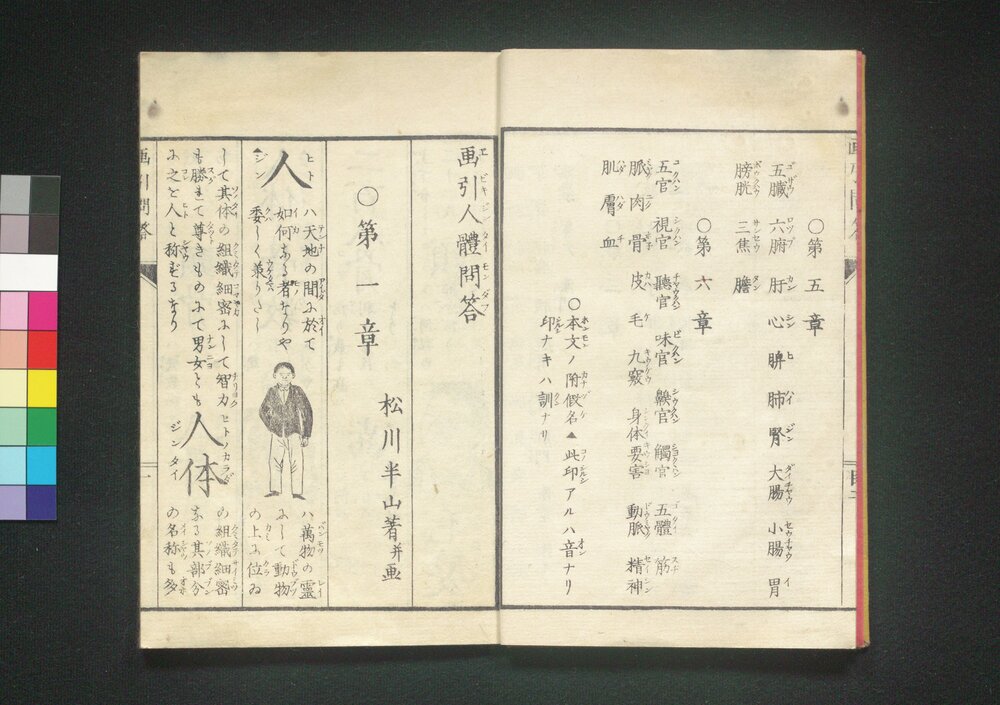 ○第五章
五臓 六腑 肝 心 脾 肺 腎 大腸 小腸 胃
膀胱 三焦 膽
○第六章
五官 視官 聽官 味官 鼻官 觸官 五體 筋
脈 肉 骨 皮 毛 九竅 身体要害 動脈 精神
肌 膚 血
○本文ノ附假名▲此印アルハ音ナリ
印ナキハ訓ナリ
画引人體問答
松川半山著并画
○第一章
人 ハ天地の間に於て
如何なる者なりや
委しく兼りたし
ハ萬物の靈
にして動物
の上に位ゐ
して其体の組織細密にして智力
も勝れて尊きものにて男女とも
に之を人と称ずるなり
人体
の組織細密
なる其部分
の名称も多
画引問答